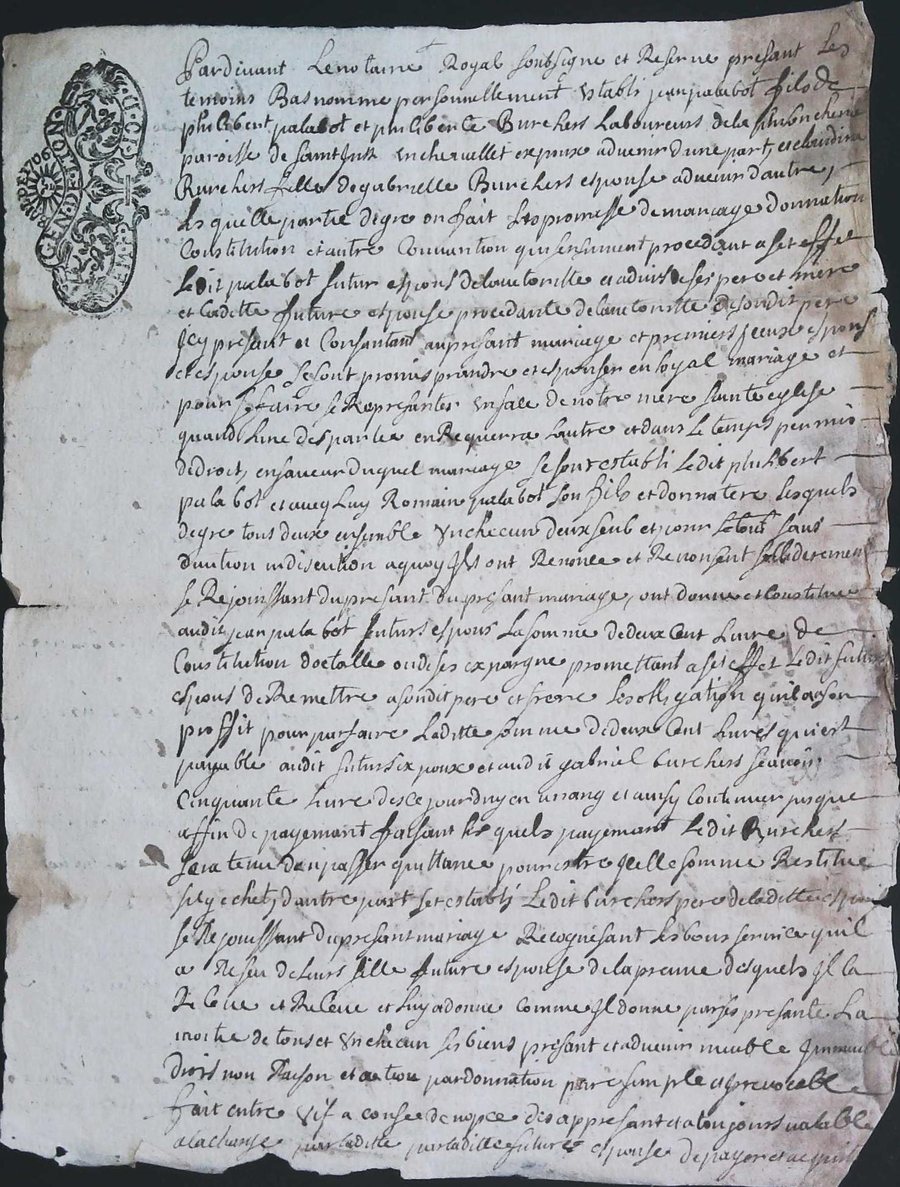 GEN. DE LYON.
Pardevant Lenotaire Royal soubsigne et Reserve presant Les
temoins Bas nomme personnellement establi jean palabot fils de
philibert palabot et philiberte Burchers Laboureurs de la
paroisse de saint just en chevallet expoux advenir d'une part, et claudine
Burchers fille de gabrielle Burchers espouse advenir d'autre,
les quelle partie degre on fait Les promesse de mariage donnation
Constitution et autre Convantion qui sensuivent procedant a set effet
Ledit palabot futur espous de lauctoritte et advis de ses pere et mere
et Laditte future espouse procedante de lauctoritte de sondit pere
Jcy presant et Consantant au presant mariage et premiers jceux espous
et espouse se sont promis prandre et espouser en loyal mariage et
pour se faire se Represanter en fase de notre mere sainte eglise
quand l'une des partie en Requerra lautre et dans Le temps permis
de droit, en faveur duquel mariage se sont establi Ledit philibert
palabot et avecq Luy Romain palabot son fils et donnatere lesquels
degre tous deux ensemble en checun deux seul et pour le tout sans
division ni discution aquoy Jls ont Renonce et Renonsent
se Rejouissant du presant du presant mariage, ont donne et Constitue
audit jean palabot futurs espous La somme de deux Cent Livre de
Constitution doctalle ou de ses expargne promettant a set effet Ledit futur
espous de Remettre a sondit pere et frere Les obligation quil a son
proffit pour parfaire Laditte somme de deux Cent Livres qui est
payable audit futurs expoux et audit gabriel Burchers scavoir
Cinquante Livre desce jourduy en un ang et ainsy Continuer jusque
affin de payemant faisant les quels payemant Ledit Burchers
sera tenu den passer quittance pour estre Jcelle somme Restitue
sil y echet, dautre part set establi Ledit Burchers pere de laditte espouse
se Rejouissant du presant mariage Recognesant Les bons service quil
a Reseu de leurs fille future espouse de la preuve desquels Jl la
Releve et Releve et Luy a donne comme Jl donne par ses presante La
moitie de tous et en checun ses biens presant et advenir meuble Jmmeuble
drois non Raison et action par donnation pure simple et Jrevocable
fait entre vif a cause de nopce des apresant et a toujours valable
a la charge par laditte par laditte future espouse de payer et acquiter